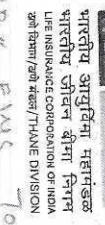 भारतीय आयुर्विमा महामंडळ
भारतीय जीवन बीमा निगम
LIFE INSURANCE CORPORATION OF INDIA
ठाणे विभाग/ठाणे मंडल/THANE DIVISION